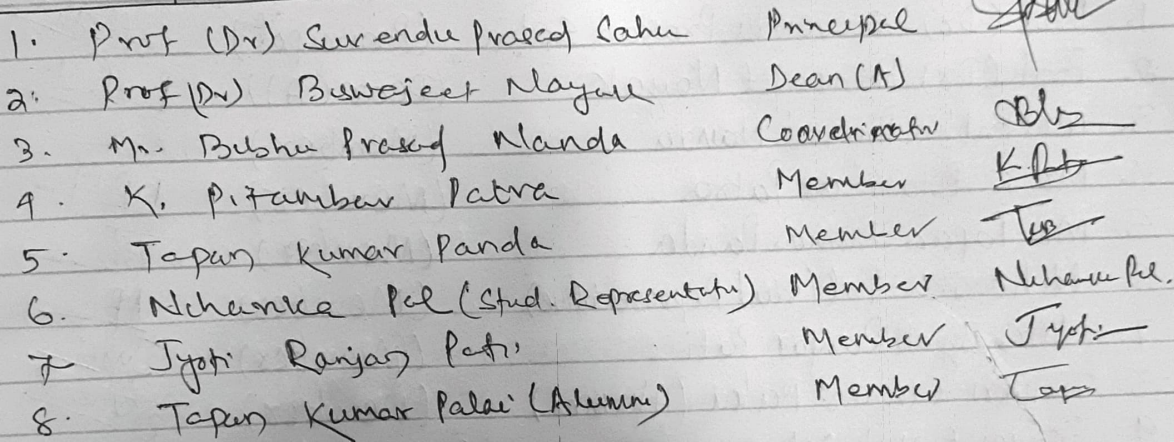 1. Prof (Dr) Surendu Prasad Sahu Principal
2. Prof (Dr) Biswejeet Nayak Dean (A)
3. Mr. Bibhu Prasad Nanda Coordinator
4. K. Pitambar Patra Member
5. Tapan Kumar Panda Member
6. Nehanka Pal (Stud. Representative) Member Nehanka Pal.
7 Jyoti Ranjan Pati Member Jyoti
8. Tapan Kumar Palai (Alumni) Member